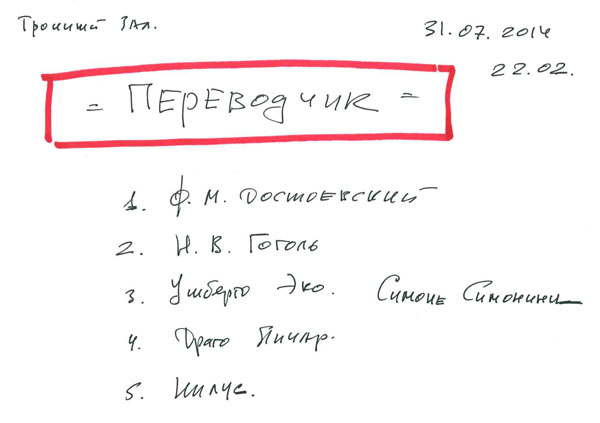 Тронный Зал.
31.07.2014
22.02.
= ПЕРЕВОДЧИК =
1. Ф. М. ДОСТОЕВСКИЙ
2. Н. В. Гоголь
3. Умберто Эко. Симоне Симонини
4. Драго Янчар.
5. Нилус.